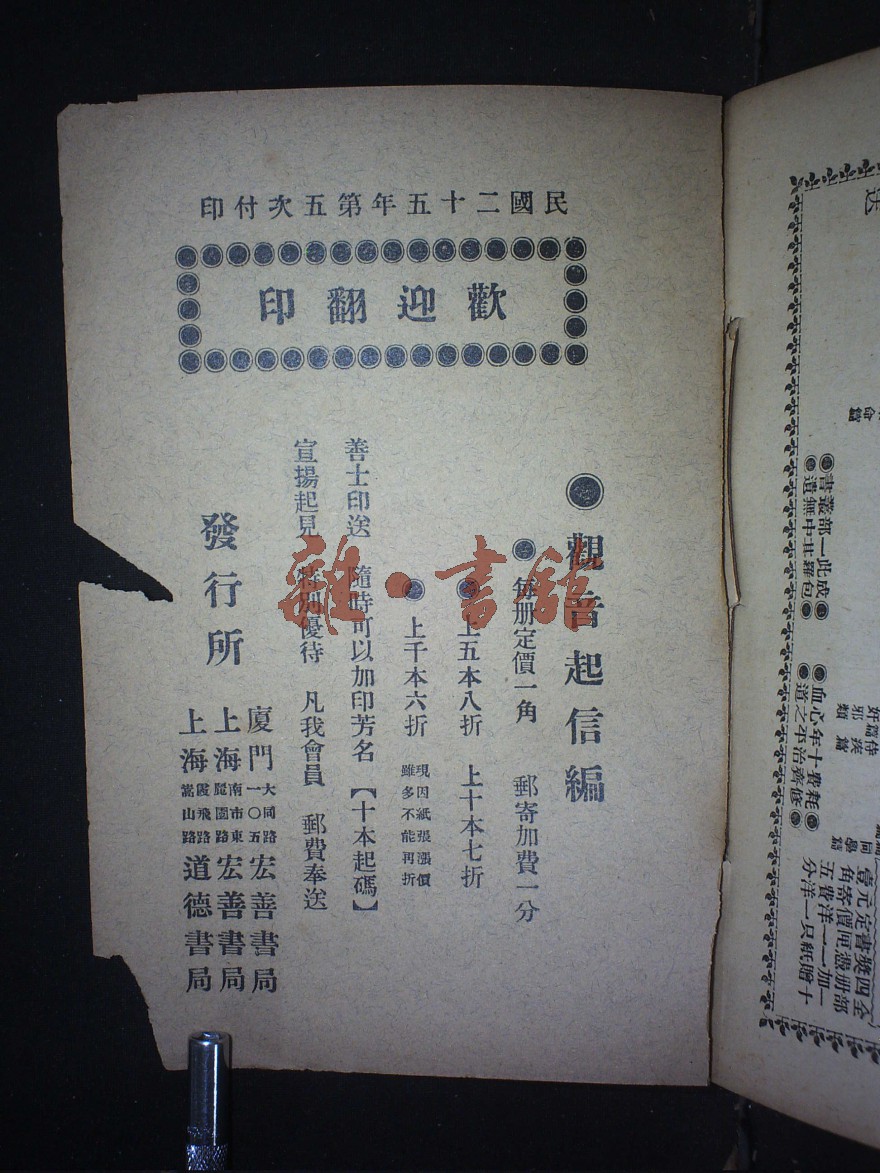 民國二十五年第五次付印
歡迎翻印
●觀音起信編
●每册定價一角　郵寄加費一分
●上五本八折　上十本七折
●上千本六折
現因紙張漲價
雖多不能再折
善士印送　隨時可以加印芳名【十本起碼】
宣揚起見　特別優待　凡我會員　郵費奉送
發行所
廈門大同路一〇五宏善書局
上海南市東㕓園路宏善書局
上海霞飛路嵩山路道德書局
雜·書館
送
●書叢部一此成●
●血心年十費耗●
●道之平治齊修●